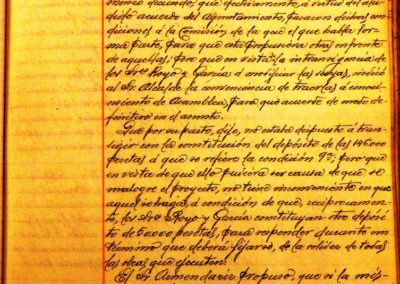 diciendo, que efectivamente, á virtud del alu-
dido acuerdo del Ayuntamiento, pasaron dichas con-
diciones á la Comisión de la que el que habla for-
ma parte, para que esta propusiera otras enfrente
de aquellas, pero que en vista de la intransigencia de
los Sres Royo y García á modificar las suyas, indicó
al Sr. Alcalde la conveniencia de traerlas á conoci-
miento de Asamblea, para que acuerde de modo de-
finitivo en el asunto.
Que por su parte, dijo, no estaba dispuesto á tran-
sigir con la constitución del depósito de las 146000
pesetas á que se refiere la condición 9ª; pero que
en vista de que ello pudiera ser causa de que se
malogre el proyecto, no tiene inconveniente en que
aquel se haga, á condición de que, recíprocamen-
te, los Sres Royo y García constituyan otro depósi-
to de 50000 pesetas, para responder durante un
término que deberá fijarse, de la solidez de todas
las obras que ejecuten.
El Sr Armendariz propuso, que ni la mis-